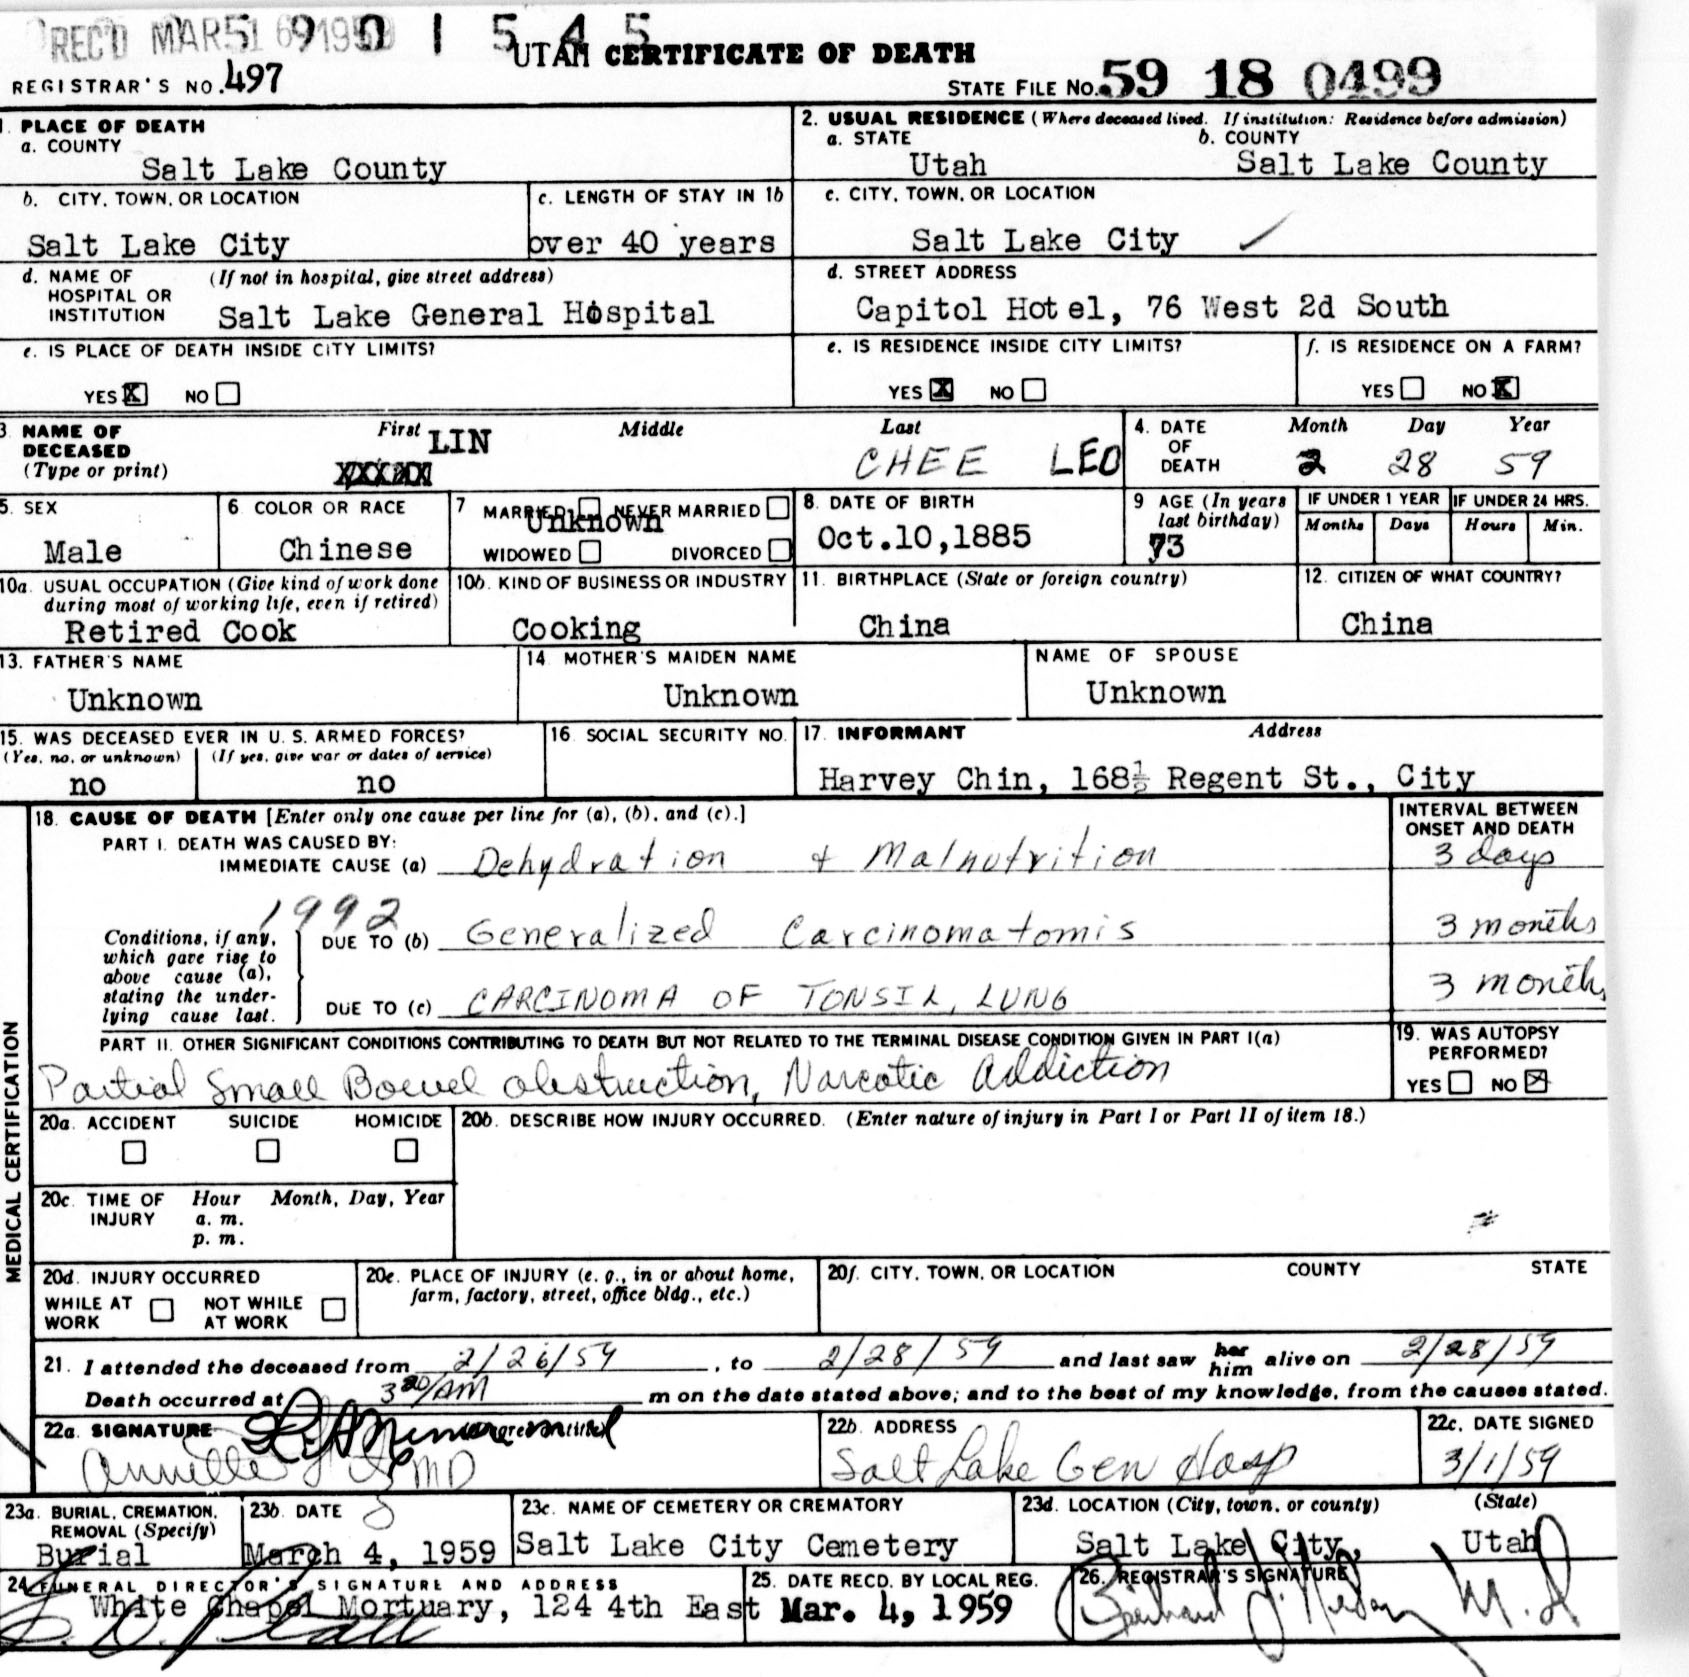 REC'D MAR
5 9 0 1 5 4 5
UTAH CERTIFICATE OF DEATH
REGISTRAR'S NO. 497
STATE FILE NO. 59 18 0499
1. PLACE OF DEATH
a. COUNTY
Salt Lake County
2. USUAL RESIDENCE (Where deceased lived. If institution: Residence before admission)
a. STATE b. COUNTY
Utah Salt Lake County
b. CITY, TOWN, OR LOCATION
Salt Lake City
c. LENGTH OF STAY IN 1b
over 40 years
c. CITY, TOWN, OR LOCATION
Salt Lake City
d. NAME OF (If not in hospital, give street address)
HOSPITAL OR
INSTITUTION Salt Lake General Hospital
d. STREET ADDRESS
Capitol Hotel, 76 West 2d South
e. IS PLACE OF DEATH INSIDE CITY LIMITS?
YES X NO
e. IS RESIDENCE INSIDE CITY LIMITS?
YES X NO
f. IS RESIDENCE ON A FARM?
YES NO X
3. NAME OF First Middle Last
DECEASED LIN CHEE LEO
(Type or print) XXXXX
4. DATE Month Day Year
OF
DEATH 2 28 59
5. SEX
Male
6. COLOR OR RACE
Chinese
7. MARRIED NEVER MARRIED
Unknown
WIDOWED DIVORCED
8. DATE OF BIRTH
Oct.10,1885
9. AGE (In years
last birthday)
73
IF UNDER 1 YEAR IF UNDER 24 HRS.
Months Days Hours Min.
10a. USUAL OCCUPATION (Give kind of work done
during most of working life, even if retired)
Retired Cook
10b. KIND OF BUSINESS OR INDUSTRY
Cooking
11. BIRTHPLACE (State or foreign country)
China
12. CITIZEN OF WHAT COUNTRY?
China
13. FATHER'S NAME
Unknown
14. MOTHER'S MAIDEN NAME
Unknown
NAME OF SPOUSE
Unknown
15. WAS DECEASED EVER IN U. S. ARMED FORCES?
(Yes, no, or unknown) (If yes, give war or dates of service)
no no
16. SOCIAL SECURITY NO.
17. INFORMANT Address
Harvey Chin, 168½ Regent St., City
18. CAUSE OF DEATH [Enter only one cause per line for (a), (b), and (c).]
INTERVAL BETWEEN
ONSET AND DEATH
PART I. DEATH WAS CAUSED BY:
IMMEDIATE CAUSE (a) Dehydration + Malnutrition 3 days
1992
Conditions, if any,
which gave rise to
above cause (a),
stating the under-
lying cause last.
DUE TO (b) Generalized Carcinomatomis 3 months
DUE TO (c) CARCINOMA OF TONSIL, LUNG 3 months
PART II. OTHER SIGNIFICANT CONDITIONS CONTRIBUTING TO DEATH BUT NOT RELATED TO THE TERMINAL DISEASE CONDITION GIVEN IN PART I(a)
Partial Small Bowel obstruction, Narcotic Addiction
19. WAS AUTOPSY
PERFORMED?
YES NO X
MEDICAL CERTIFICATION
20a. ACCIDENT SUICIDE HOMICIDE
20b. DESCRIBE HOW INJURY OCCURRED. (Enter nature of injury in Part I or Part II of item 18.)
20c. TIME OF Hour Month, Day, Year
INJURY a. m.
p. m.
20d. INJURY OCCURRED
WHILE AT NOT WHILE
WORK AT WORK
20e. PLACE OF INJURY (e. g., in or about home,
farm, factory, street, office bldg., etc.)
20f. CITY, TOWN, OR LOCATION COUNTY STATE
21. I attended the deceased from 2/26/59, to 2/28/59 and last saw her him alive on 2/28/59
Death occurred at 3 20/AM m on the date stated above; and to the best of my knowledge, from the causes stated.
22a. SIGNATURE (Degree or title)
MD
22b. ADDRESS
Salt Lake Gen Hosp
22c. DATE SIGNED
3/1/59
23a. BURIAL, CREMATION,
REMOVAL (Specify)
Burial
23b. DATE
March 4, 1959
23c. NAME OF CEMETERY OR CREMATORY
Salt Lake City Cemetery
23d. LOCATION (City, town, or county) (State)
Salt Lake City, Utah
24. FUNERAL DIRECTOR'S SIGNATURE AND ADDRESS
White Chapel Mortuary, 124 4th East
25. DATE RECD. BY LOCAL REG.
Mar. 4, 1959
26. REGISTRAR'S SIGNATURE
M.D